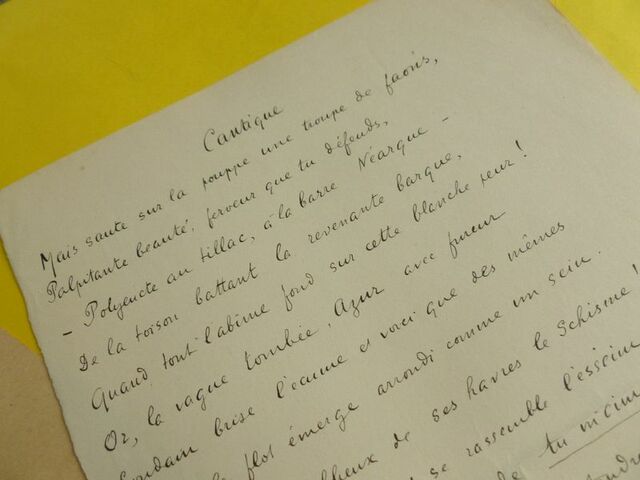 Cantique
Mais saute sur la pouppe une troupe de faons,
Palpitante beauté, ferveur que tu défends,
- Polyeucte au tillac, à la barre Néarque -
De la toison battant la revenante barque,
Quand tout l'abîme fond sur cette blanche peur!
Or, la vague tombée, Azur avec fureur
Soudain brise l'écume et voici que des mêmes
flot émerge arrondi comme un sein.
de ses havres le Schisme!
se rassemble l'essaim
de tu